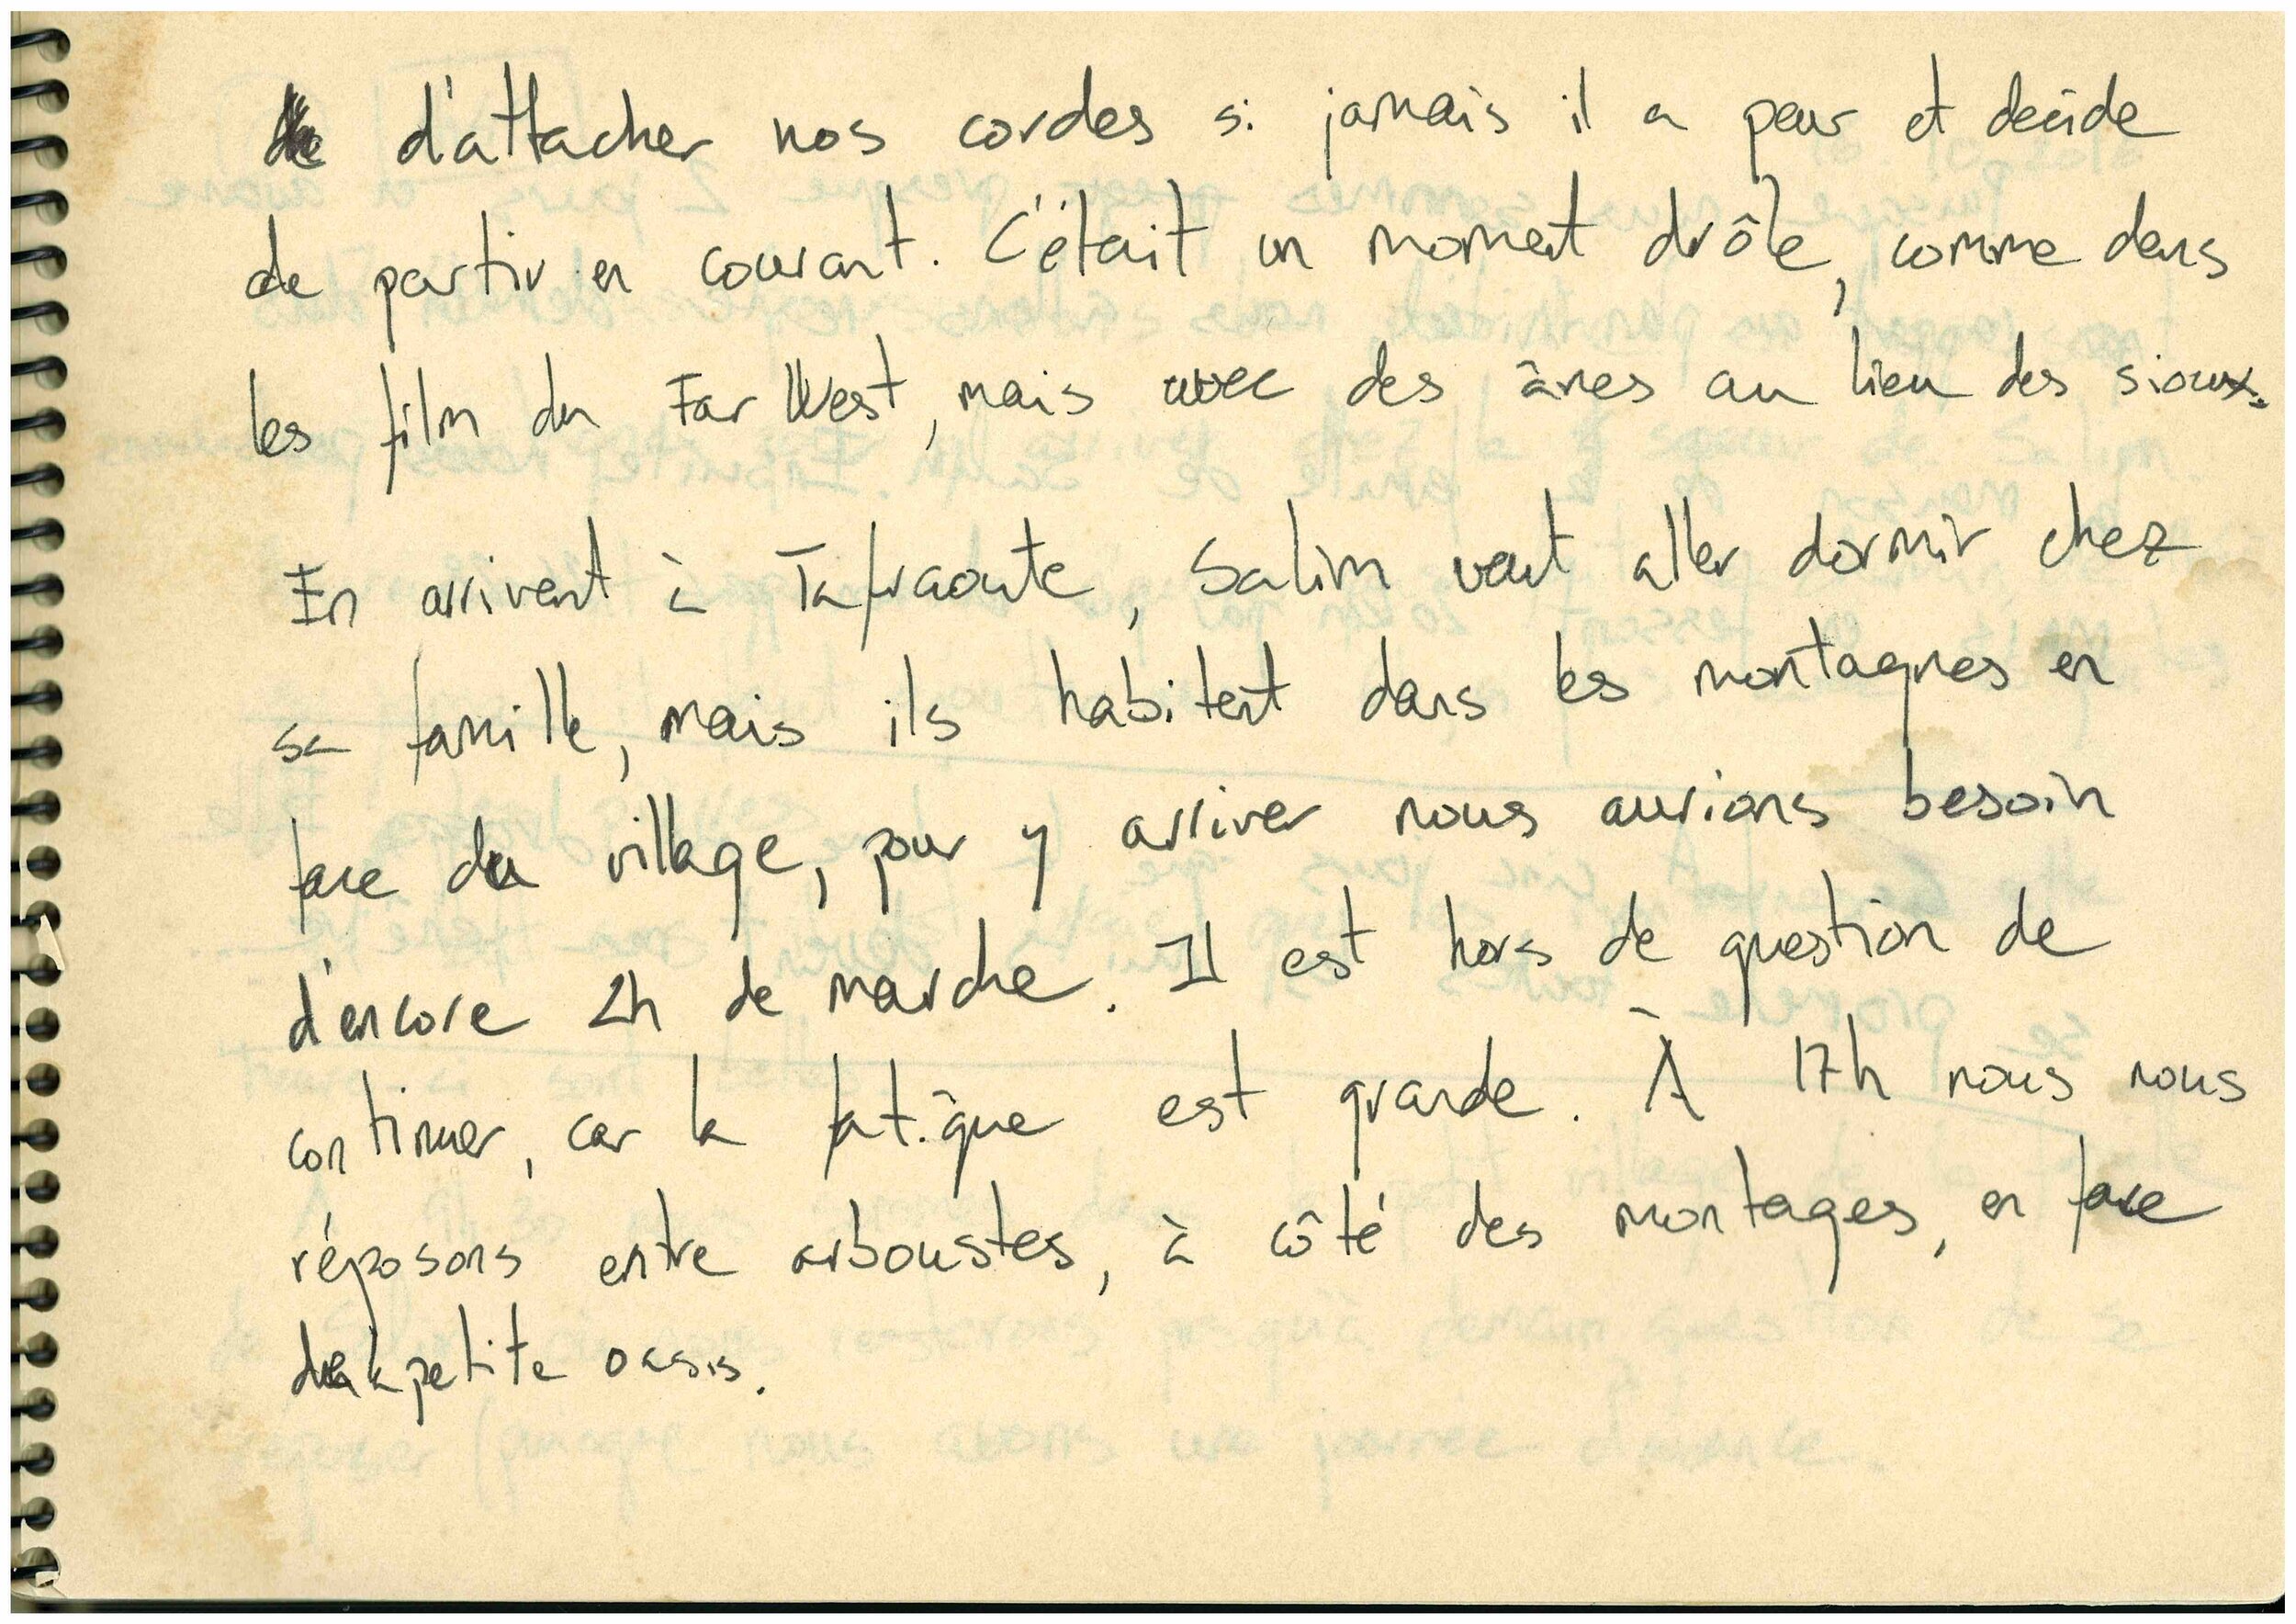 de d'attacher nos cordes si jamais il a peur et decide
de partir en courant. C'était un moment drôle, comme dans
les film du Far West, mais avec des ânes au lieu des sioux.
En arrivent à Tafraoute, Salim veut aller dormir chez
sa famille, mais ils habitent dans les montagnes en
face du village, pour y arriver nous aurions besoin
d'encore 2h de marche. Il est hors de question de
continuer, car la fatigue est grande. À 17h nous nous
réposons entre arboustes, à côté des montages, en face
de la petite oasis.